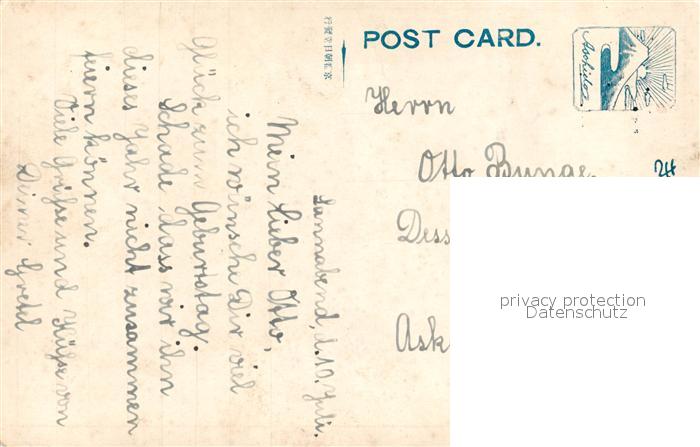 POST CARD.
Asahido
行發堂日朝都京
Herrn
Otto Bunge
24
Dess
Ask
privacy protection
Datenschutz
Sonnabend, d. 10. Juli.
Mein lieber Otto,
ich wünsche Dir viel
Glück zum Geburtstag.
Schade, dass wir ihn
dieses Jahr nicht zusammen
feiern können.
Viele Grüße und Küße von
Deiner Gretel